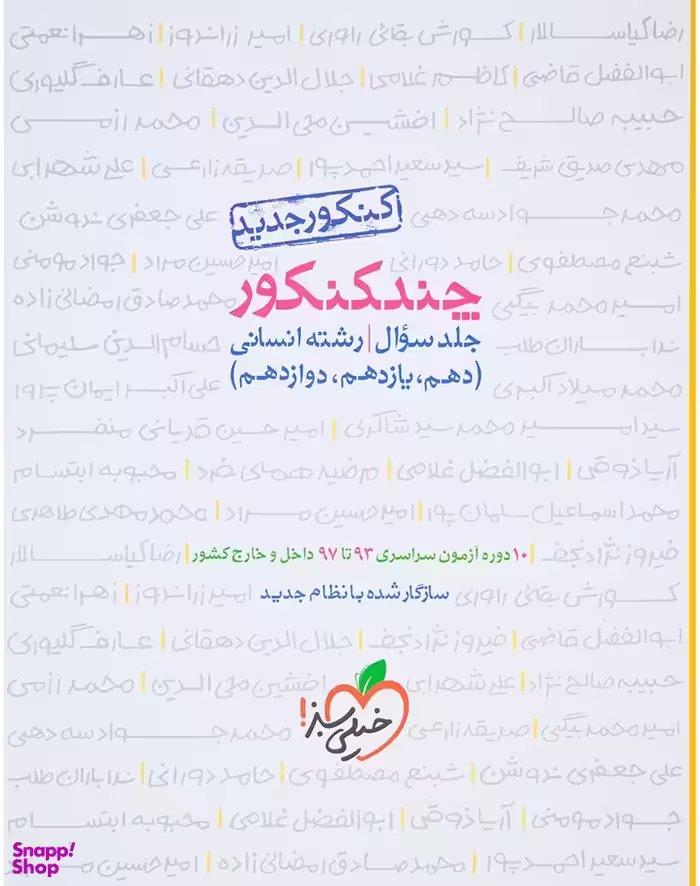 رضا کیاسالار | کورش بقائی راوری | امیر زراندوز | زهرا نعمتی
ابوالفضل قاضی | کاظم غلامی | جلال الدین دهقانی | عارف گلپوری
حبیبه صالح نژاد | افشین محی الدین | محمد رزمی
مهدی صدیق شریف | سید سعید احمدپور | صدیقه زارعی | علی شهرابی
محمدجواد سه دهی
علی جعفری ندوشن
کنکور جدید
شبنم مصطفوی | حامد دورانی
امیرحسین مراد | جواد مومنی
چند کنکور
امیر محمد بیگی
محمدصادق رمضانی زاده
جلد سؤال | رشته انسانی
ندا باران طلب
حسام الدین سلیمانی
(دهم، یازدهم، دوازدهم)
محمد میلاد اکبری
علی اکبر ایمان پرور
سید امیر محمد سید شاکری | امیرحسین قربانی منفرد
آریا ذوقی | ابوالفضل غلامی | مرضیه همای فرد | محبوبه ابتسام
محمد اسماعیل سلمان پور | امیرحسین مراد | محمدمهدی طاهری
فیروز نژادنجف | ۱۰ دوره آزمون سراسری ۹۳ تا ۹۷ داخل و خارج کشور | رضا کیاسالار
کورش بقائی راوری
سازگار شده با نظام جدید
امیر زراندوز | زهرا نعمتی
ابوالفضل قاضی | فیروز نژادنجف | جلال الدین دهقانی | عارف گلپوری
حبیبه صالح نژاد | علی شهرابی
افشین محی الدین | محمد رزمی
امیر محمد بیگی | صدیقه زارعی
محمدجواد سه دهی
خیلی سبز!
علی جعفری ندوشن | شبنم مصطفوی | حامد دورانی | ندا باران طلب
جواد مومنی | آریا ذوقی | ابوالفضل غلامی | محبوبه ابتسام
سید سعید احمدپور | محمدصادق رمضانی زاده | امیرحسین
Snapp!
Shop